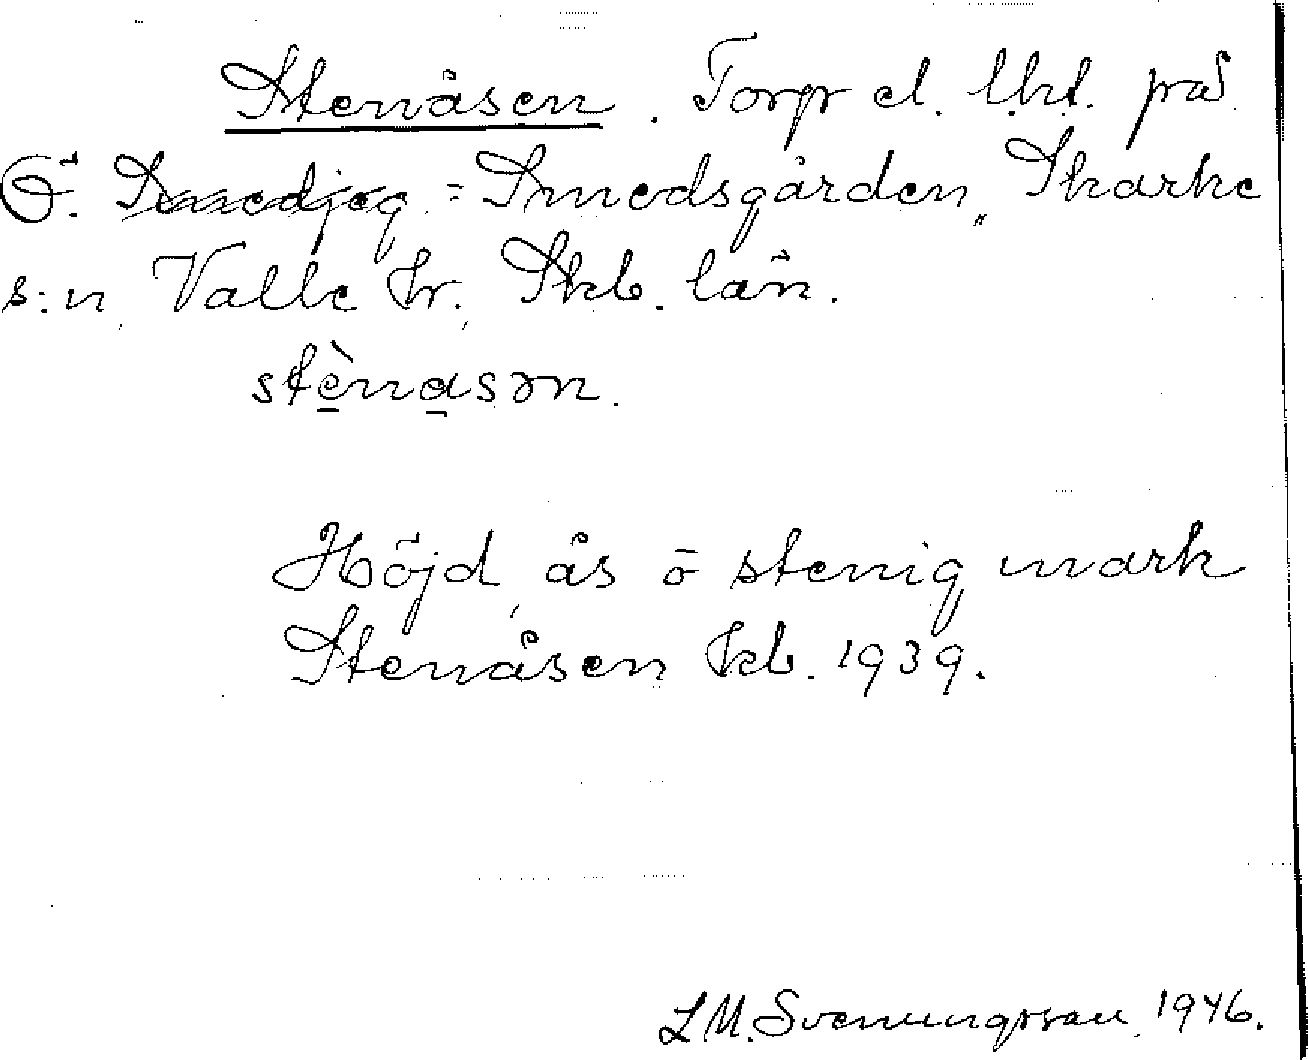 Stenåsen. Torp el. lht. på
Ö. Smedjeg. = Smedsgården, Skarke
s:n, Valle hr. Skb. län.
stènasən.
Höjd, ås o stenig mark
Stenåsen Jkb. 1939.
L M. Svenungsson 1946.